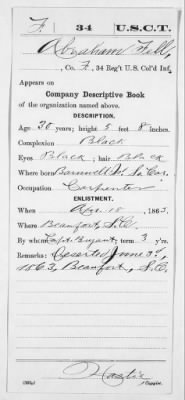 F. 34 U.S.C.T.
Abraham Fell,
, Co. F, 34 Reg't U.S. Col'd Inf.
Appears on
Company Descriptive Book
of the organization named above.
DESCRIPTION.
Age 30 years; height 5 feet 8 inches.
Complexion Black
Eyes Black; hair Black
Where born Barnwell, So. Car.
Occupation Carpenter
ENLISTMENT.
When Apr. 10, 1863.
Where Beaufort, S.C.
By whom Capt. Bryant; term 3 y'rs.
Remarks: Deserted June 3d,
1863, Beaufort, S.C.
Hastie
Copyist.